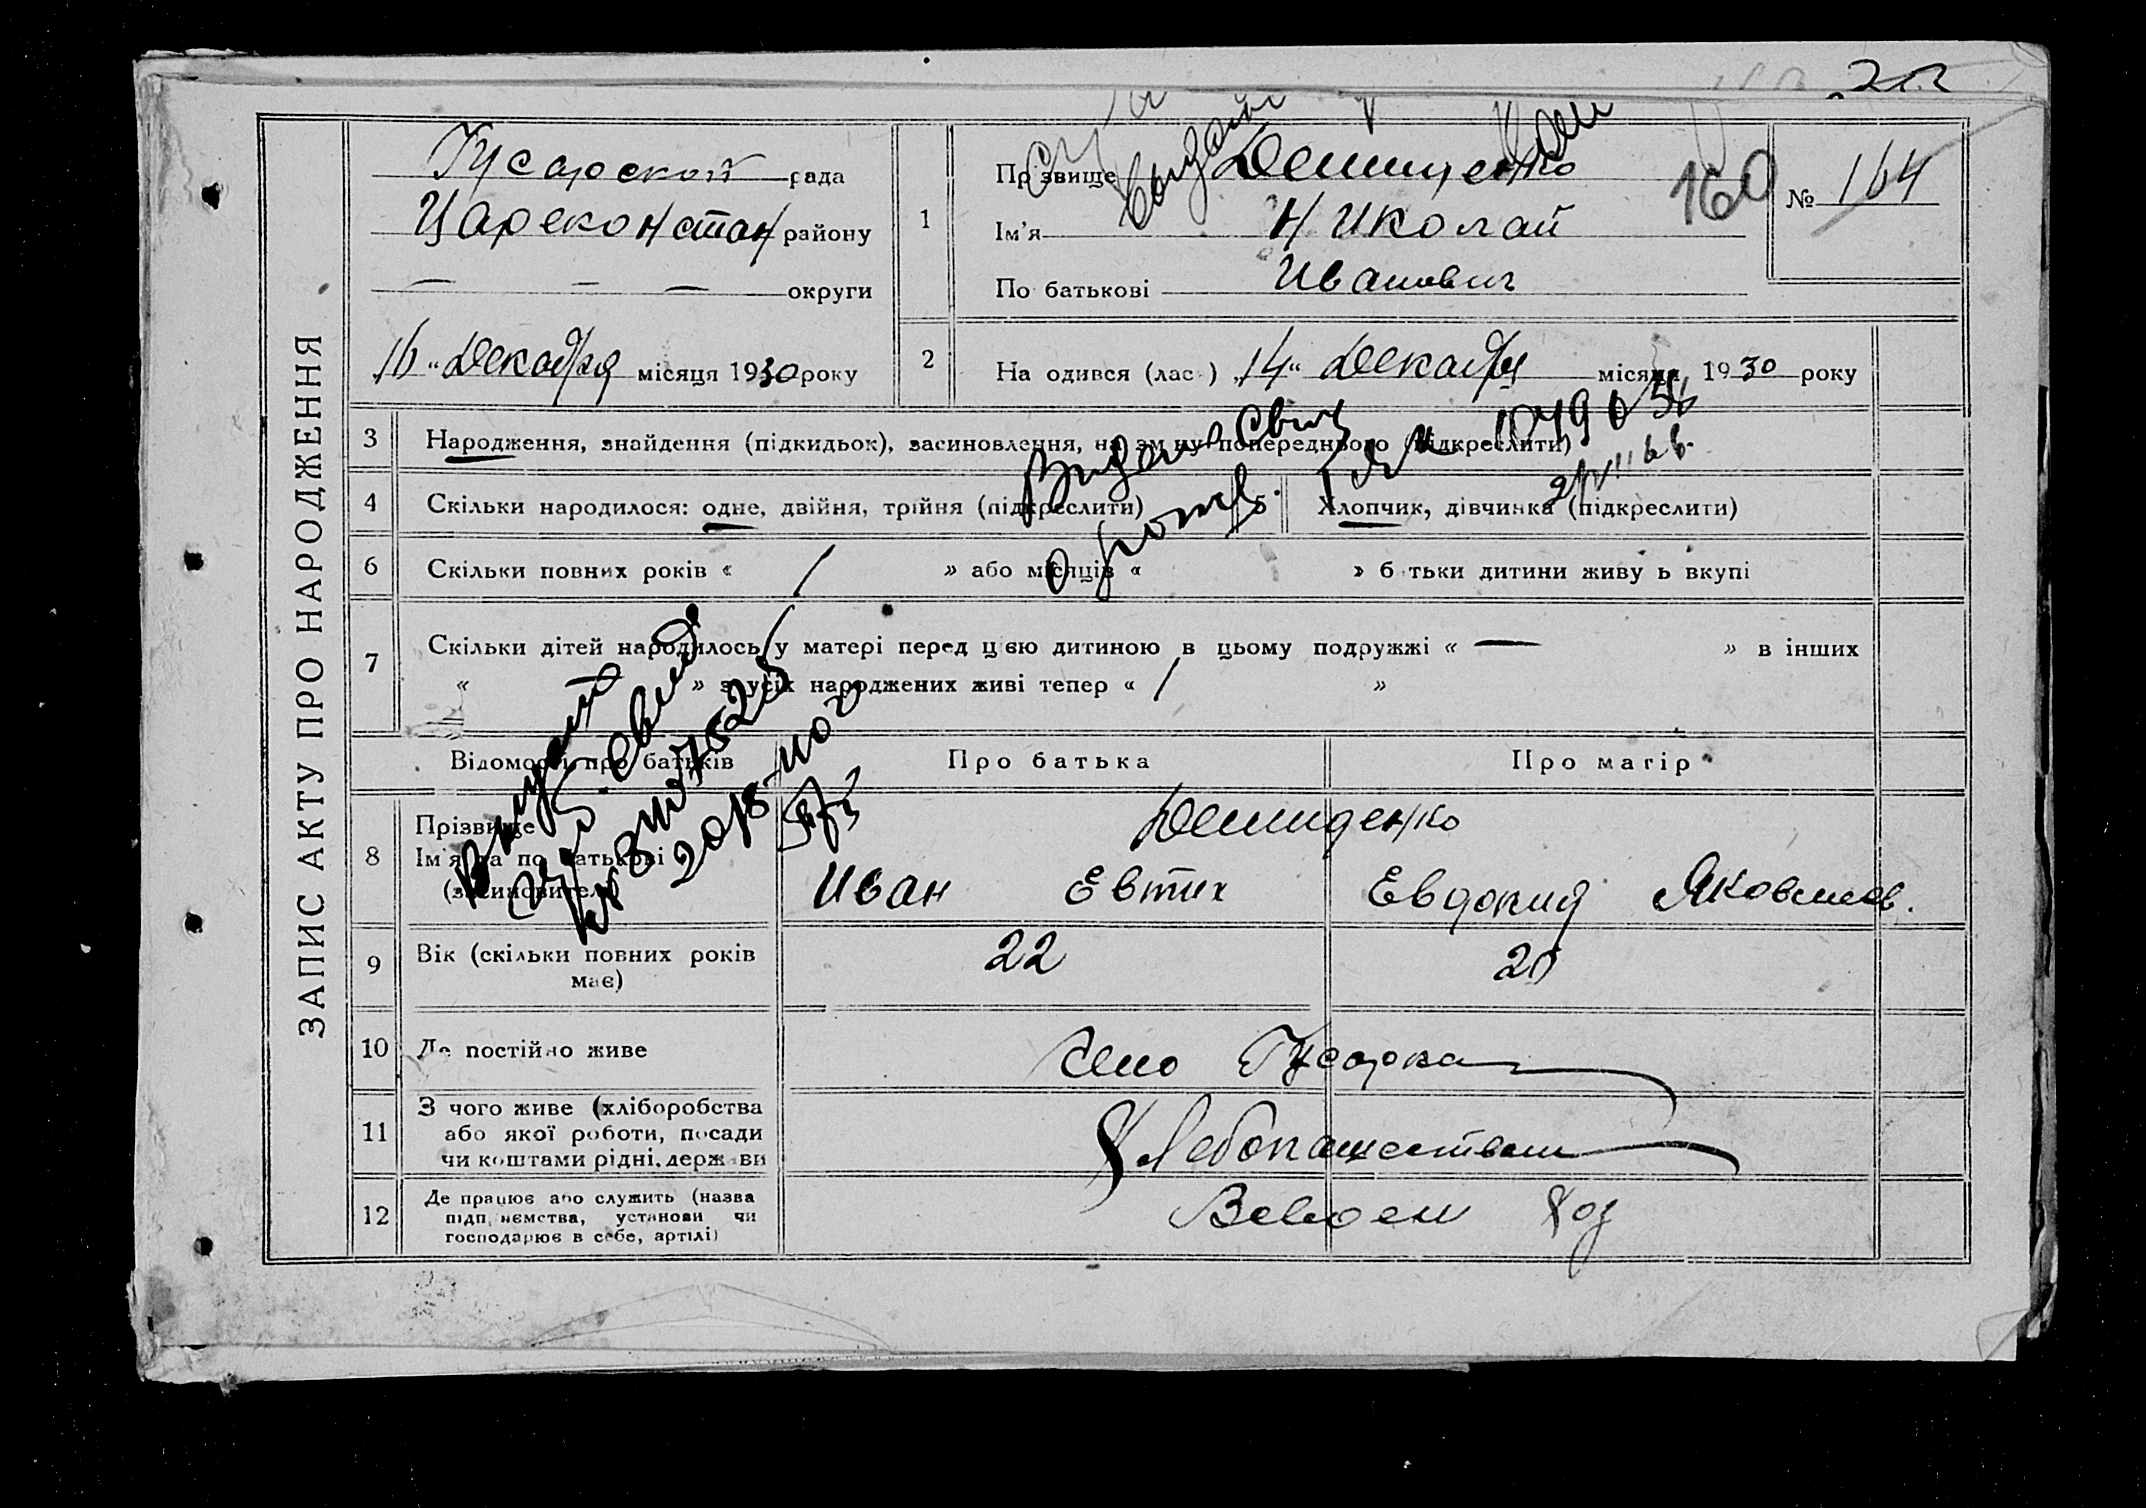 ЗАПИС АКТУ ПРО НАРОДЖЕННЯ
Гусарской рада
Цареконстан району
— — — округи
„16“ Декабря місяця 1930 року
1
Прізвище Демиденко
Ім’я Николай
По батькові Иванович
160
№ 164
2
На одився (лас ) „14“ Декабря місяця 1930 року
3 Народження, знайдення (підкидьок), засиновлення, на зм ну попереднього (підкреслити)
4 Скільки народилося: одне, двійня, трійня (підкреслити)
5 Хлопчик, дівчинка (підкреслити)
6 Скільки повних років « / » або місяців « » б тьки дитини живу ь вкупі
7 Скільки дітей народилось у матері перед цією дитиною в цьому подружжі « — » в інших
« » з усіх народжених живі тепер « / »
Выдано свид
о рожд.
Відомості про батьків
Про батька
Про матір
8 Прізвище
Ім’я та по батькові
(засиновителі)
Демиденко
Иван Евтих
Евдокия Яковлев.
9 Вік (скільки повних років
має)
22
20
10 Де постійно живе
Село Гусарка
11 З чого живе (хліборобства
або якої роботи, посади
чи коштами рідні, держави
Хлебопашеством
12 Де працює або служить (назва
підп иємства, установи чи
господарює в себе, артілі)
В своем хоз